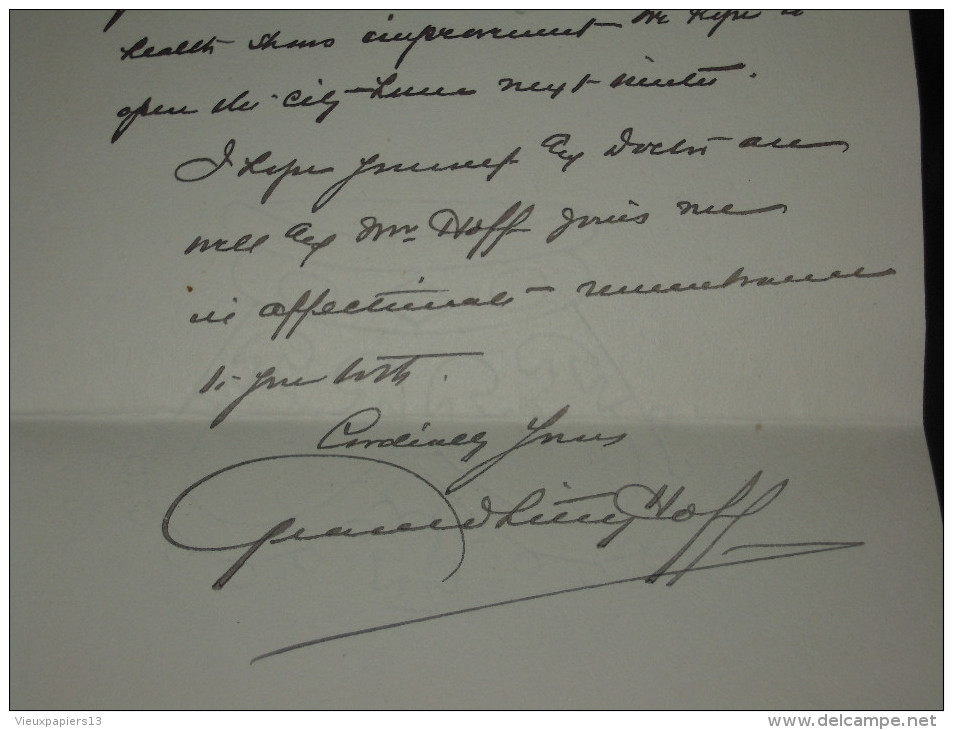 health shows improvement we hope to
open the city house next winter.
I hope yourself & Doctor are
well & Mr. Hoff joins me
in affectionate remembrance
to you both.
Cordially Yours
Hoff
Vieuxpapiers13
www.delcampe.net